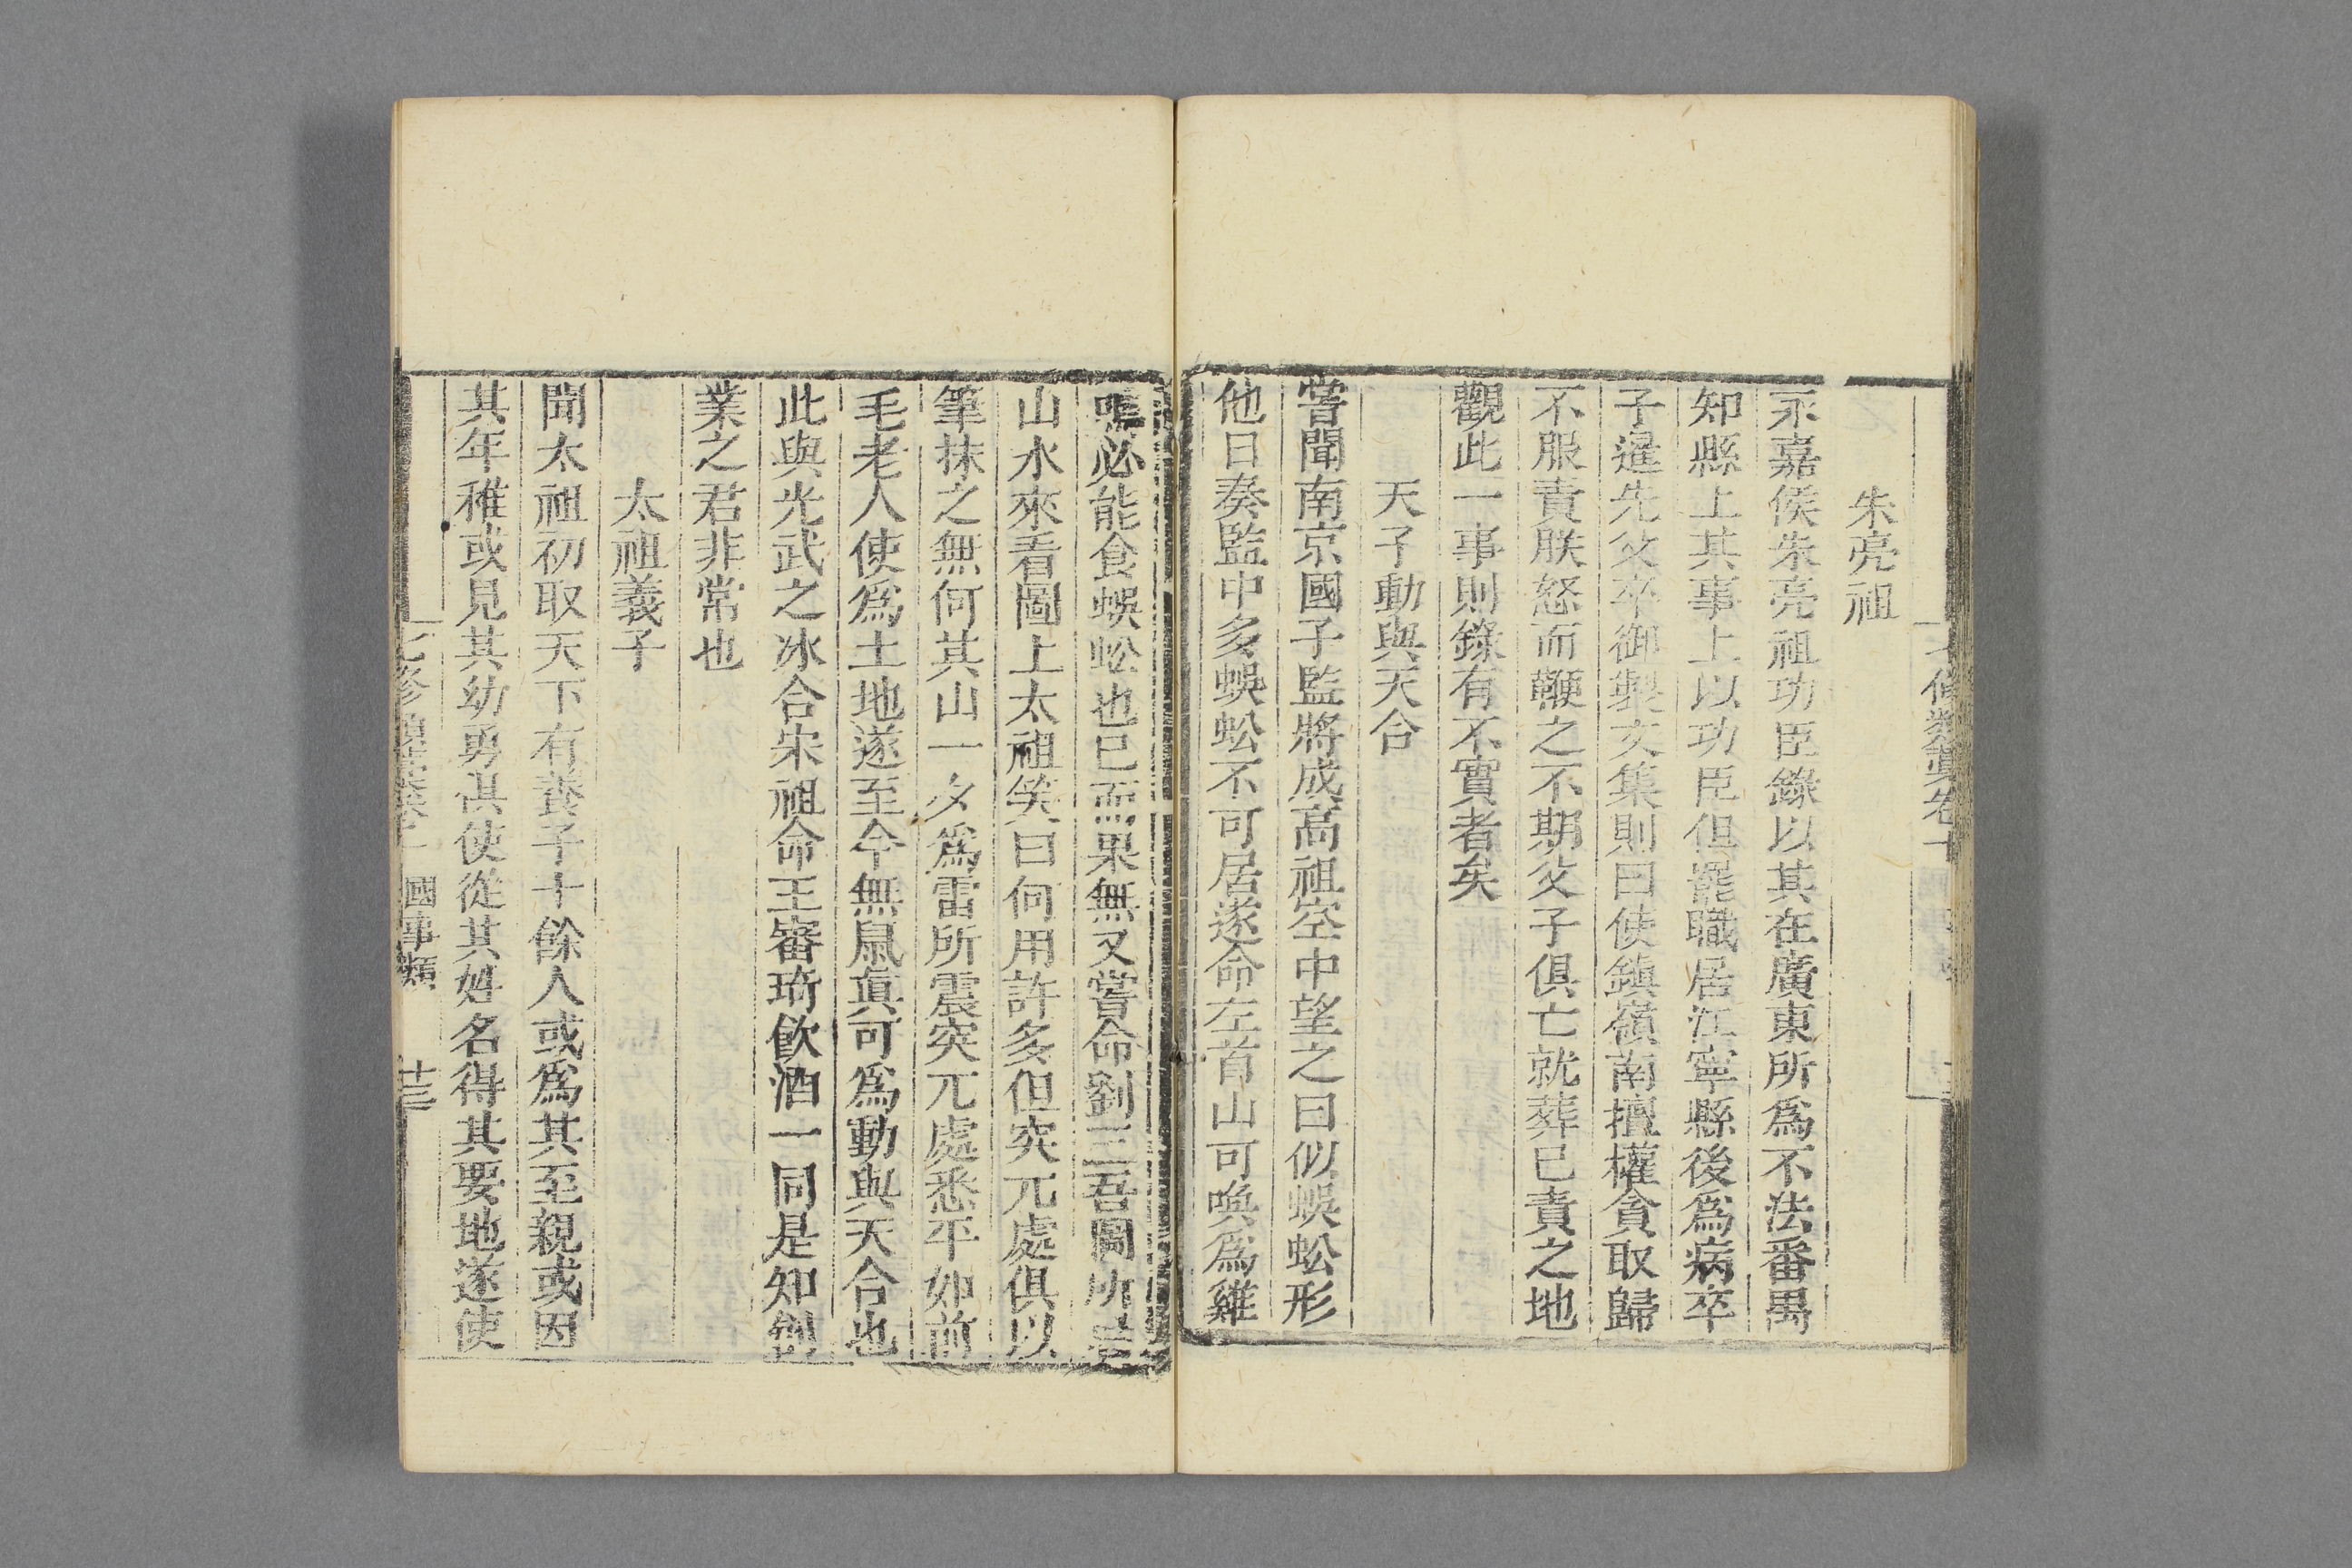 朱亮祖
永嘉侯朱亮祖功臣錄以其在廣東所爲不法番禺
知縣上其事上以功臣但罷職居江寧縣後爲病卒
子暹先父卒御製文集則曰使鎮嶺南擅權貪取歸
不服責朕怒而鞭之不期父子俱亡就葬已責之地
觀此一事則錄有不實者矣
天子動與天合
嘗聞南京國子監將成高祖空中望之曰似蜈蚣形
他日奏監中多蜈蚣不可居遂命左首山可喚爲雞
鳴必能食蜈蚣也已而果無又嘗命劉三吾圖所居
山水來看圖上太祖笑曰何用許多但突兀處俱以
筆抹之無何其山一夕爲雷所震突兀處悉平如前
毛老人使爲土地遂至今無鼠眞可爲動與天合也
此與光武之冰合宋祖命王審琦飲酒一同是知創
業之君非常也
太祖義子
聞太祖初取天下有養子十餘人或爲其至親或因
其年稚或見其幼勇俱使從其姓名得其要地遂使
七修類藁卷 國事類 十三